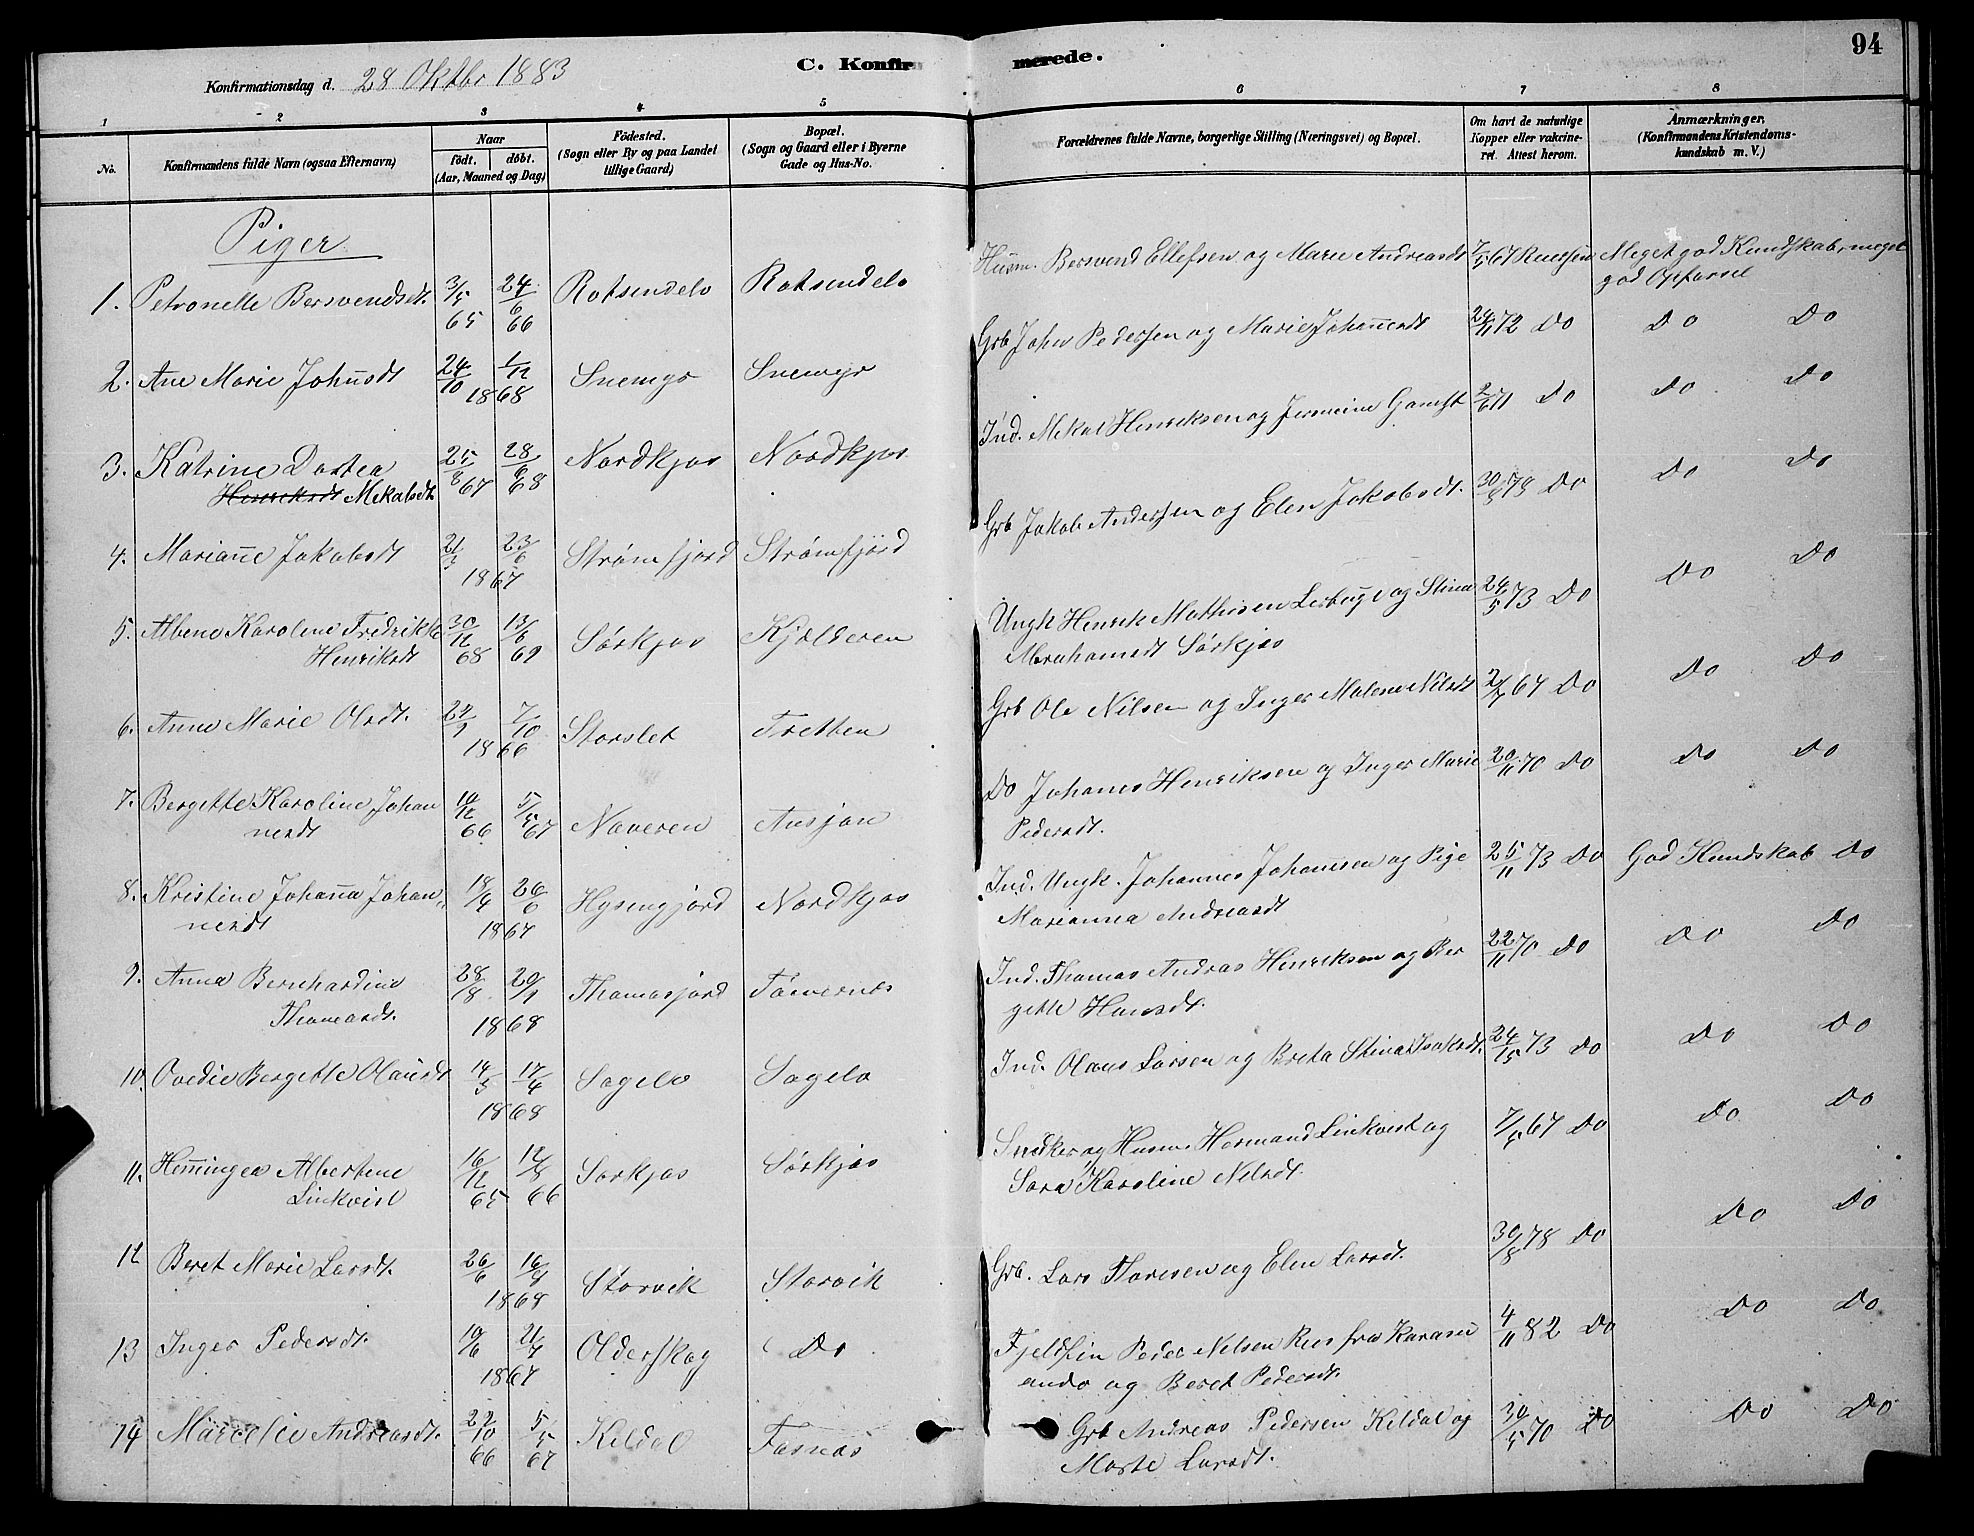 94
C. Konfirmerede.
Konfirmationsdag d. 28 Oktbr 1883
1 2 3 4 5 6 7 8
No.
Konfirmandens fulde Navn (ogsaa Efternavn)
Naar
født. døbt.
(Aar, Maaned og Dag)
Fødested.
(Sogn eller By og paa Landet
tillige Gaard)
Bopæl.
(Sogn og Gaard eller i Byerne
Gade og Hus-No.
Forældrenes fulde Navne, borgerlige Stilling (Næringsvei) og Bopæl.
Om havt de naturlige
Kopper eller vakcine-
ret. Attest herom.
Anmærkninger.
(Konfirmandens Kristendoms-
kundskab m. V.)
Piger
1. Petronelle Bersvendsdt. 3/5 65 24/6 66 Rotsundelv Rotsundelv Husm. Bersvend Ellefsen og Marie Andreasdt 7/5 67 Meget god Kundskab, meget
god Opførsel
2. Ane Marie Johnsdt 24/10 1/12 1868 Snemyr Snemyr Grb John Pedersen og Marie Johannesdt 24/11 72 Do Do Do
3. Katrine Dortea
Henriksdt Mikalsdt 25/8 67 28/6 68 Nordkjos Nordkjos Ind. Mikal Henriksen og Jermine Gamst 2/6 71 Do Do Do
4. Marianne Jakobsdt 21/3 23/6 1867 Strømfjord Strømfjord Grb Jakob Andersen og Elen Jakobsdt. 30/8 78 Do Do Do
5. Albene Karoline Fredrikke
Henriksdt 30/12 68 13/6 69 Sørkjos Kjelderen Ungk Henrik Mathisen og Stina
Abrahamsdt Sørkjos 24/5 73 Do Do Do
6. Anne Marie Olsdt. 22/9 7/10 1866 Storslet Tretten Grb Ole Nilsen og Inger Malene Nilsdt 2/7 67 Do Do Do
7. Bergette Karoline Johan
nesdt 10/12 66 5/5 67 Naveren Ansjøn Do Johannes Henriksen og Inger Marie
Pedersdt. 20/11 70 Do Do Do
8. Kristine Johanna Johan„
nesdt 18/4 26/6 1867 Hysingjord Nordkjos Ind. Ungk. Johannes Johansen og Pige
Marianna Andreasdt 25/11 73 Do God Kundskab Do
9. Anna Bernhardine
Thomasdt. 28/8 20/9 1868 Thomasjord Ind. Thomas Andras Henriksen og Ber
gette Hansdt. 22/11 70 Do Do Do
10. Ovedie Bergette Olausdt 14/3 14/4 1868 Sagelv Sagelv Ind. Olaus Larsen og Breta Stina Isaksdt. 24/15 73 Do Do Do
11. Hemmingea Albertene
Linkvist 16/12 65 12/8 66 Sørkjos Sørkjos Snedker og Husm. Hermand Linkvist og
Sara Karoline Nilsdt. 7/5 67 Do Do Do
12 Beret Marie Larsdt. 26/6 16/9 1868 Storvik Storvik Grb. Lars Thoresen og Elen Larsdt. 30/8 78 Do Do Do
13 Inger Pedersdt. 10/6 21/7 1867 Olderskog Do Fjeldfin Peder Nilsen fra Karasu
ando og Beret Pedersdt. 4/11 82 Do Do Do
14 Marelie Andreasdt. 22/10 66 5/5 67 Kildal Grb Andreas Pedersen Kildal og
Marte Larsdt. 30/5 70 Do Do Do